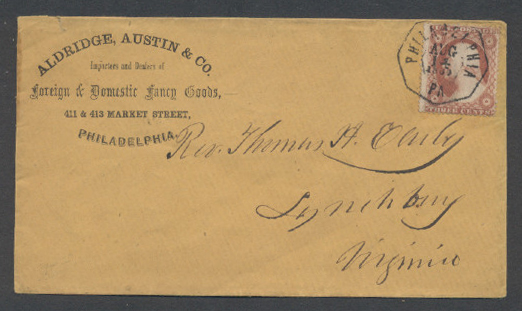 ALDRIDGE, AUSTIN & CO.
Importers and Dealers of
Foreign & Domestic Fancy Goods,
411 & 413 MARKET STREET,
PHILADELPHIA.
PHILADELPHIA
AUG
PA
THREE CENTS
Rev. Thomas H. Early
Lynchburg
Virginia